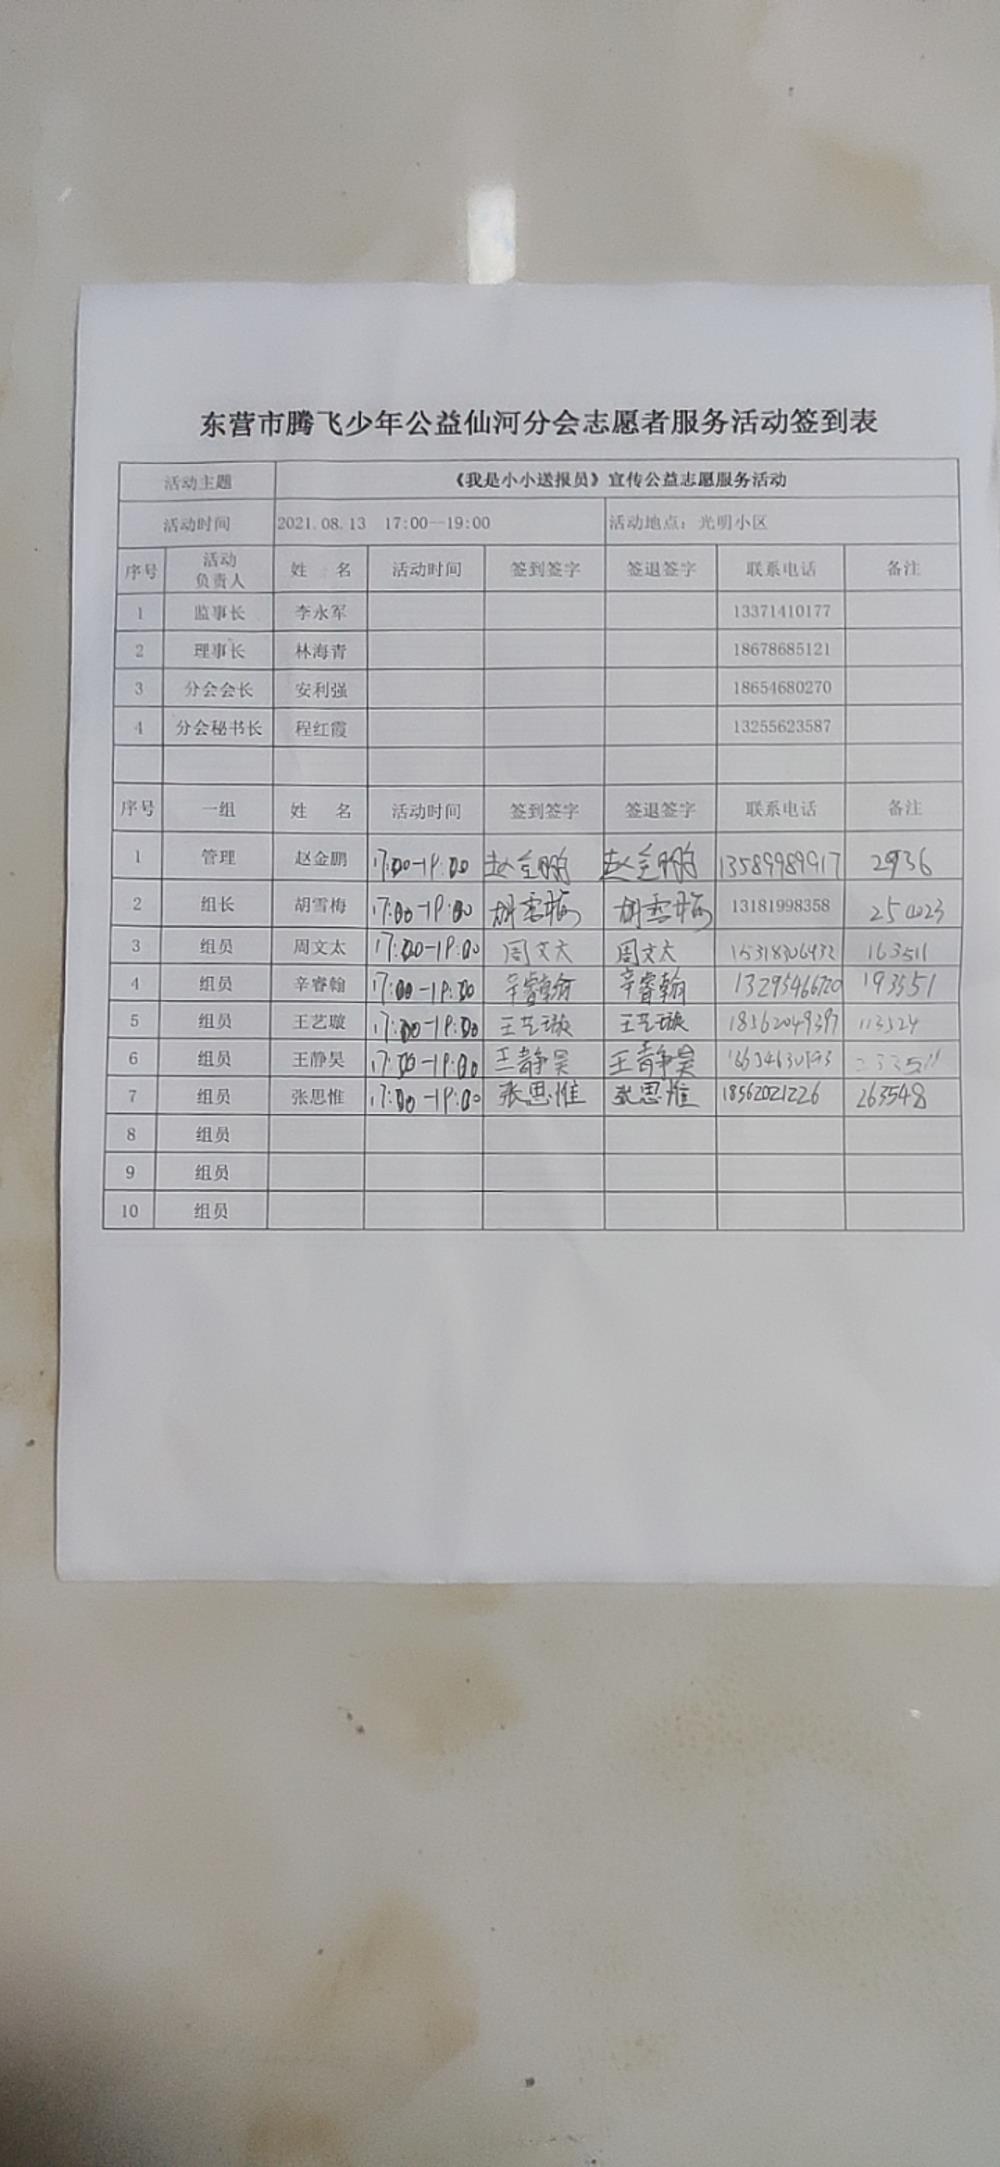 东营市腾飞少年公益仙河分会志愿者服务活动签到表
活动主题 《我是小小送报员》宣传公益志愿服务活动
活动时间 2021.08.13 17:00--19:00 活动地点：光明小区
序号 活动负责人 姓 名 活动时间 签到签字 签退签字 联系电话 备注
1 监事长 李永军 13371410177
2 理事长 林海青 18678685121
3 分会会长 安利强 18654680270
4 分会秘书长 程红霞 13255623587
序号 一组 姓 名 活动时间 签到签字 签退签字 联系电话 备注
1 管理 赵金鹏 17:00-19:00 赵金鹏 赵金鹏 13589989917 29936
2 组长 胡雪梅 17:00-19:00 胡雪梅 胡雪梅 13181998358
3 组员 周文太 17:00-19:00 周文太 周文太 163511
4 组员 辛睿翰 17:00-19:00 辛睿翰 辛睿翰 13295466720 193551
5 组员 王艺璇 17:00-19:00 王艺璇 王艺璇 18562049397 113524
6 组员 王静昊 17:00-19:00 王静昊 王静昊
7 组员 张思惟 17:00-19:00 张思惟 张思惟 18562021226 263548
8 组员
9 组员
10 组员